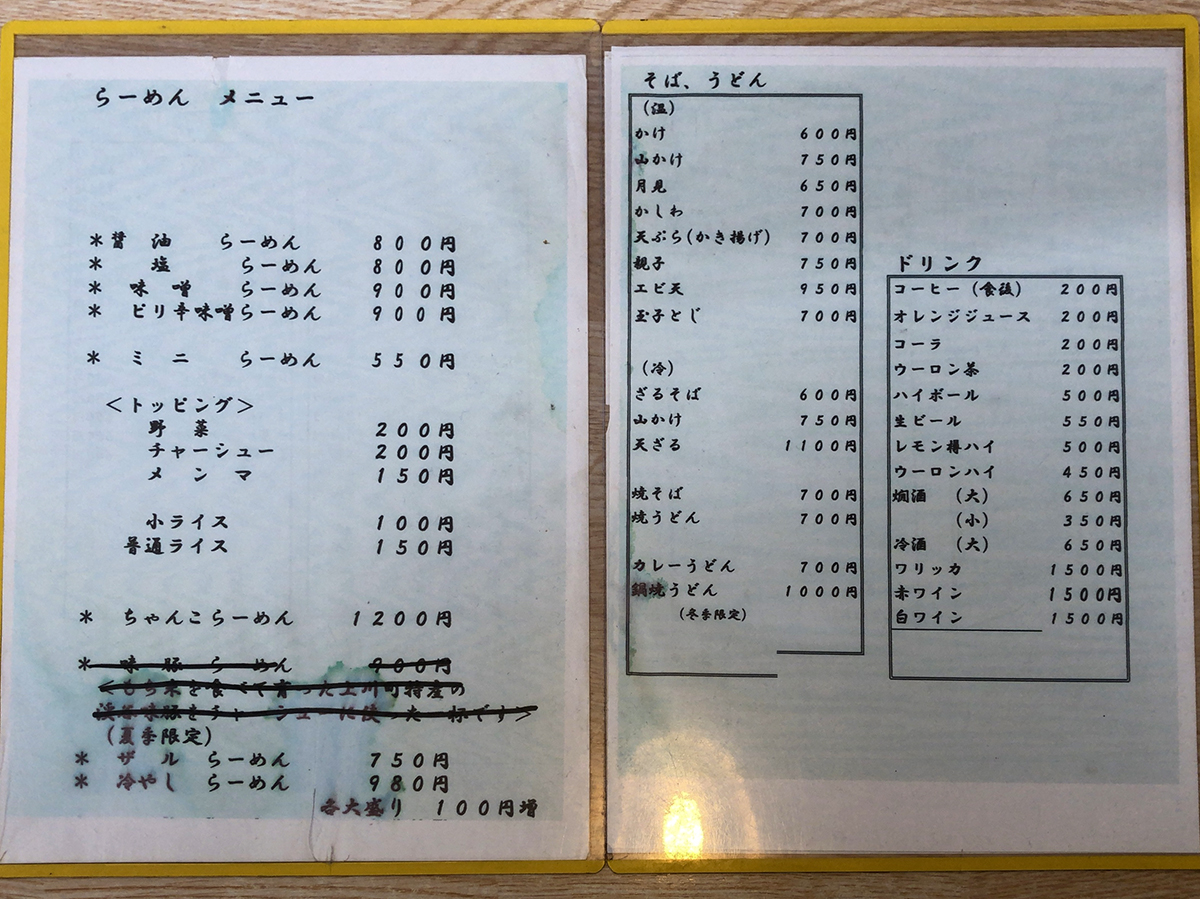 らーめん メニュー
＊醤 油 らーめん 800円
＊ 塩 らーめん 800円
＊ 味 噌 らーめん 900円
＊ ピリ辛味噌らーめん 900円
＊ ミ ニ らーめん 550円
＜トッピング＞
野 菜 200円
チャーシュー 200円
メ ン マ 150円
小ライス 100円
普通ライス 150円
＊ ちゃんこらーめん 1200円
＊ 味 豚 らーめん 900円
＜もち米を食べて育った上川町特産の
渓谷味豚をチャーシューに使った一杯です＞
（夏季限定）
＊ ザ ル らーめん 750円
＊ 冷やし らーめん 980円
各大盛り 100円増
そば、うどん
（温）
かけ 600円
山かけ 750円
月見 650円
かしわ 700円
天ぷら(かき揚げ) 700円
親子 750円
エビ天 950円
玉子とじ 700円
（冷）
ざるそば 600円
山かけ 750円
天ざる 1100円
焼そば 700円
焼うどん 700円
カレーうどん 700円
鍋焼うどん 1000円
（冬季限定）
ドリンク
コーヒー（食後） 200円
オレンジジュース 200円
コーラ 200円
ウーロン茶 200円
ハイボール 500円
生ビール 550円
レモン樽ハイ 500円
ウーロンハイ 450円
燗酒 （大） 650円
（小） 350円
冷酒 （大） 650円
ワリッカ 1500円
赤ワイン 1500円
白ワイン 1500円